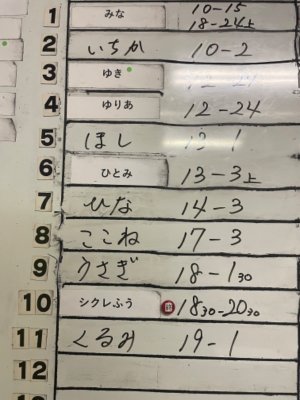 1 みな 10-15
18-24上
2 いちか 10-2
3 ゆき
4 ゆりあ 12-24
5 ほし 13-1
6 ひとみ 13-3上
7 ひな 14-3
8 ここね 17-3
9 うさぎ 18-130
10 シクレふう 1830-2030
11 くるみ 19-1
12